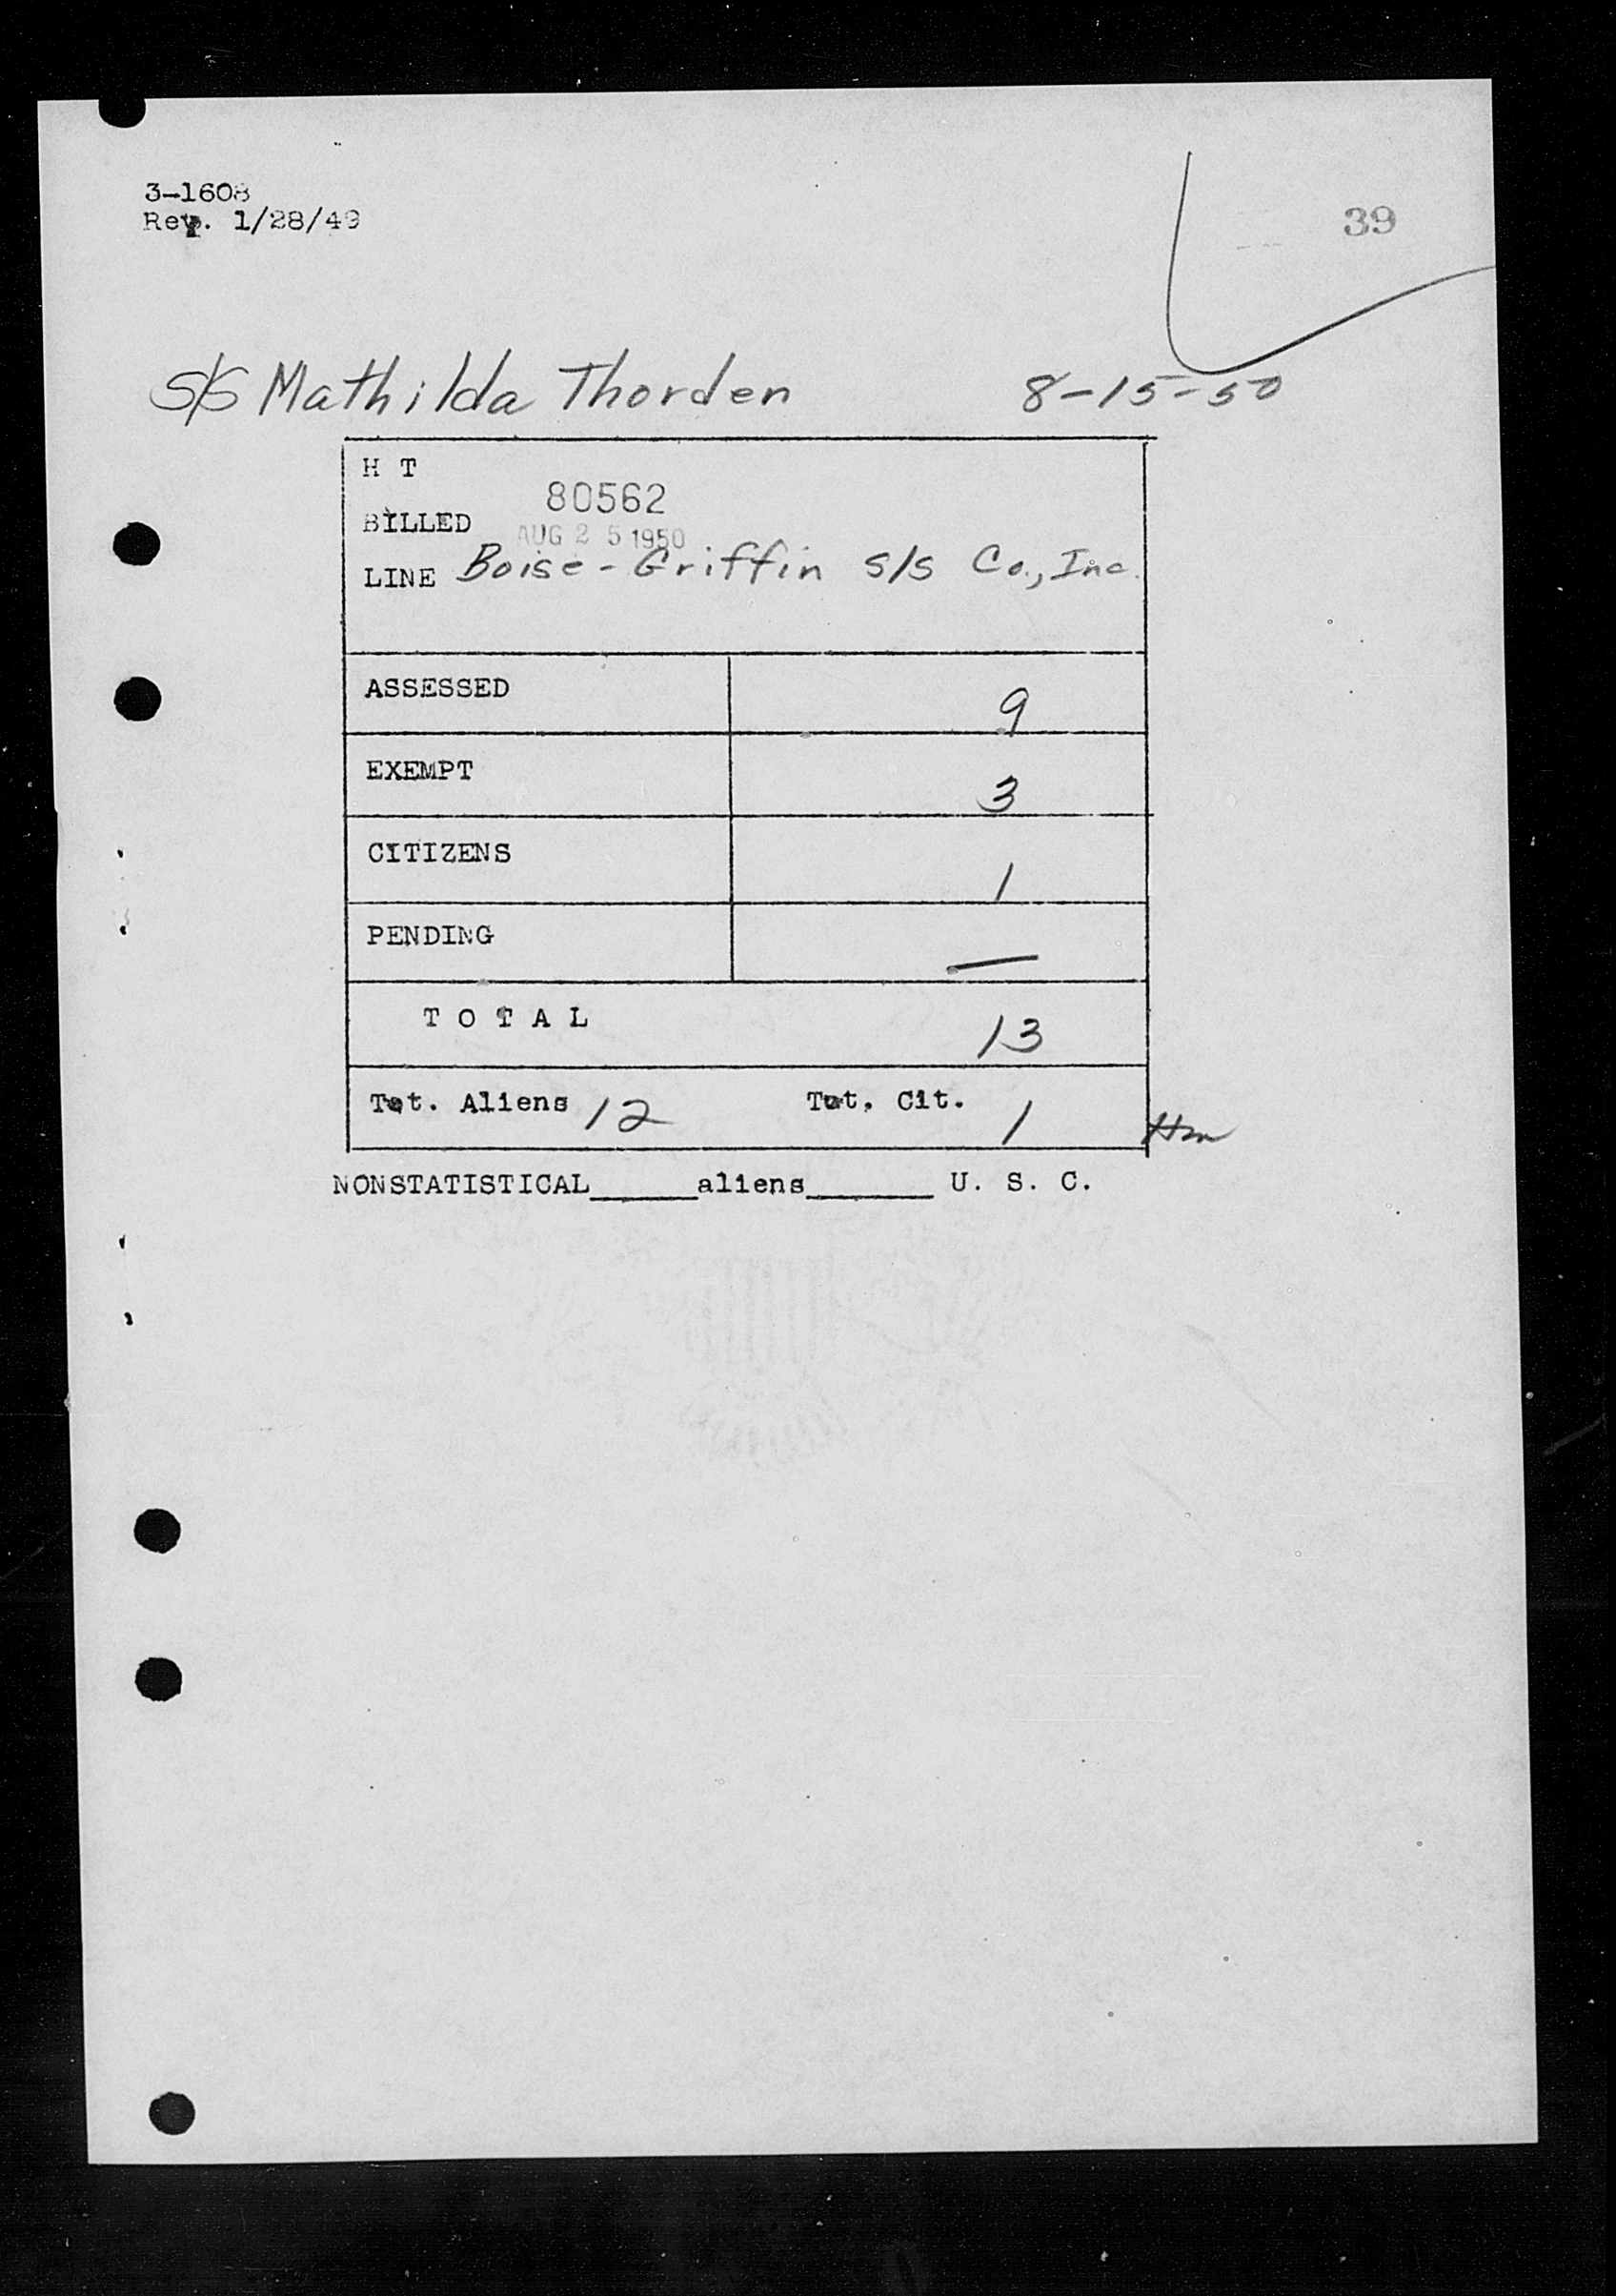 3-1608
Rev. 1/28/49
39
S/S Mathilda Thorden 8-15-50
H T
80562
BILLED
AUG 25 1950
LINE Boise-Griffin S/S Co., Inc.
ASSESSED 9
EXEMPT 3
CITIZENS 1
PENDING —
TOTAL 13
Tot. Aliens 12 Tot. Cit. 1
NONSTATISTICAL______aliens_______ U. S. C.